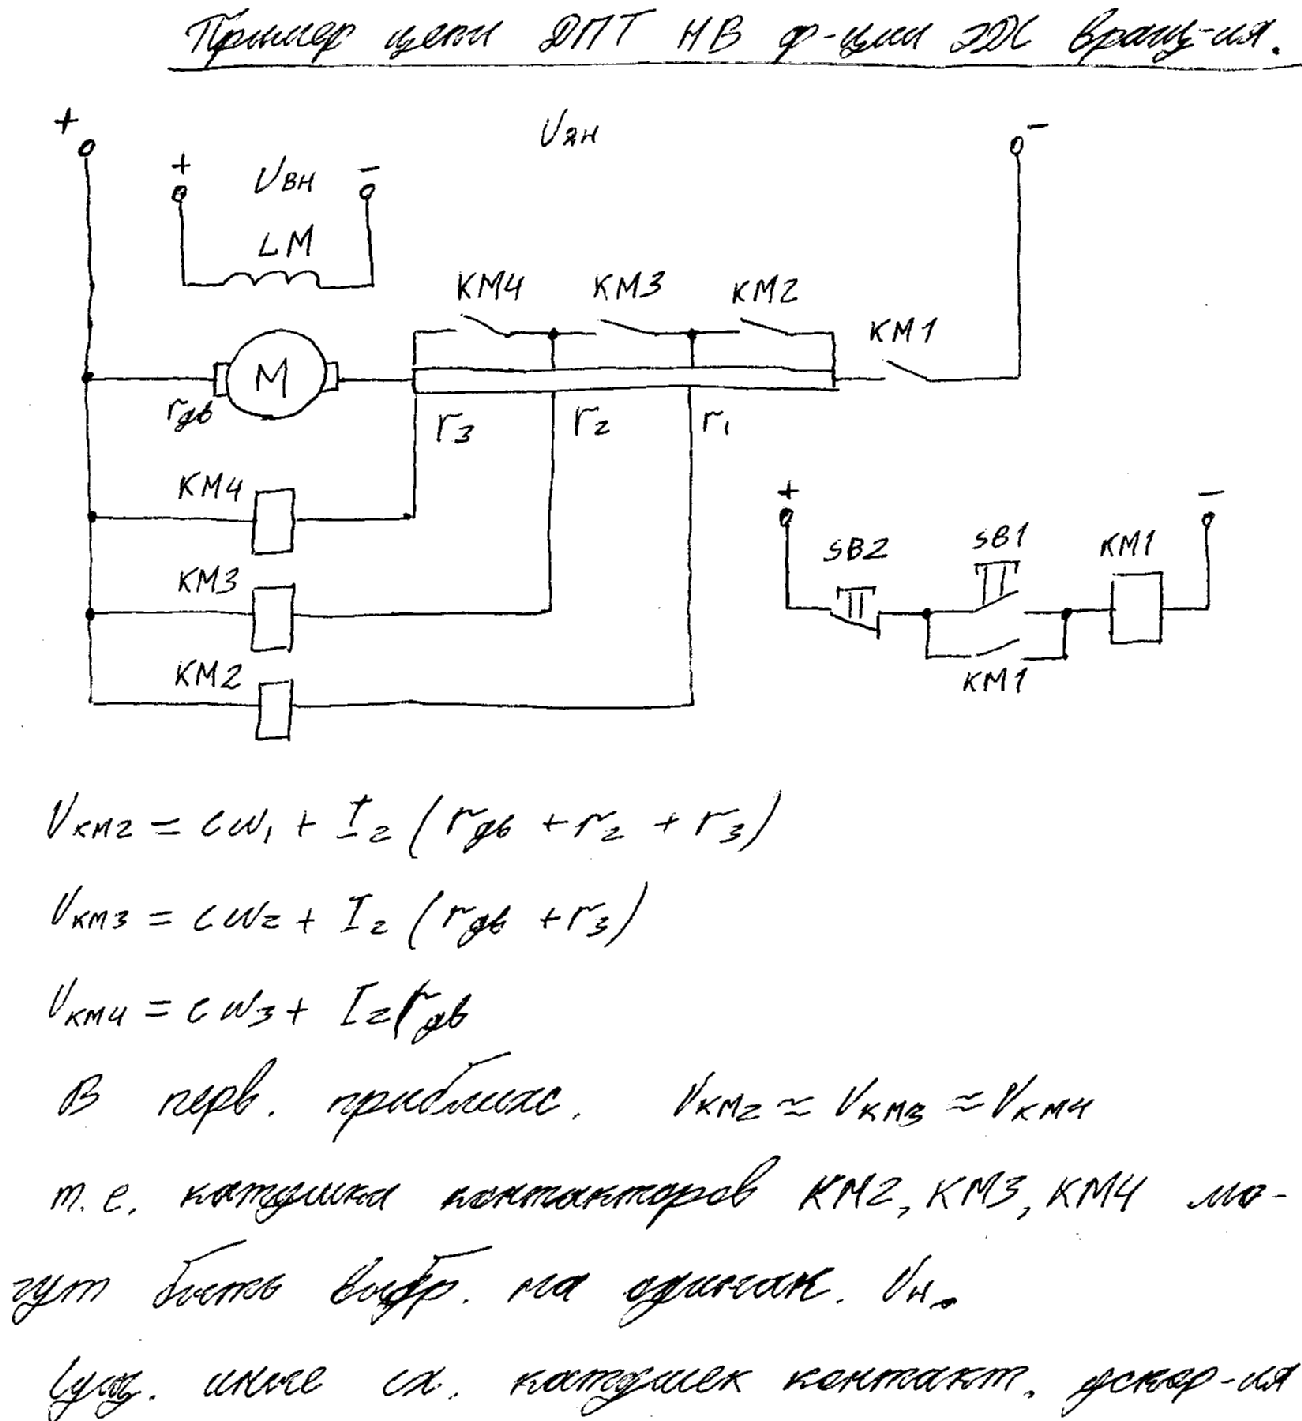 Пример цепи ДПТ НВ ф-ции ЭДС вращ-ия.
+ Uян -
+ Uвн -
LM
КМ4 КМ3 КМ2
КМ1
M
rдв r3 r2 r1
КМ4
+ -
SB2 SB1 КМ1
КМ3
КМ2
КМ1
Uкм2 = cω1 + I2 (rдв + r2 + r3)
Uкм3 = cω2 + I2 (rдв + r3)
Uкм4 = cω3 + I2 rдв
В перв. приближ. Uкм2 ≈ Uкм3 ≈ Uкм4
т.е. катушка контакторов КМ2, КМ3, КМ4 мо-
гут быть выбр. на одинак. Uн.
Сущ. иные сх. катушек контакт. ускор-ия